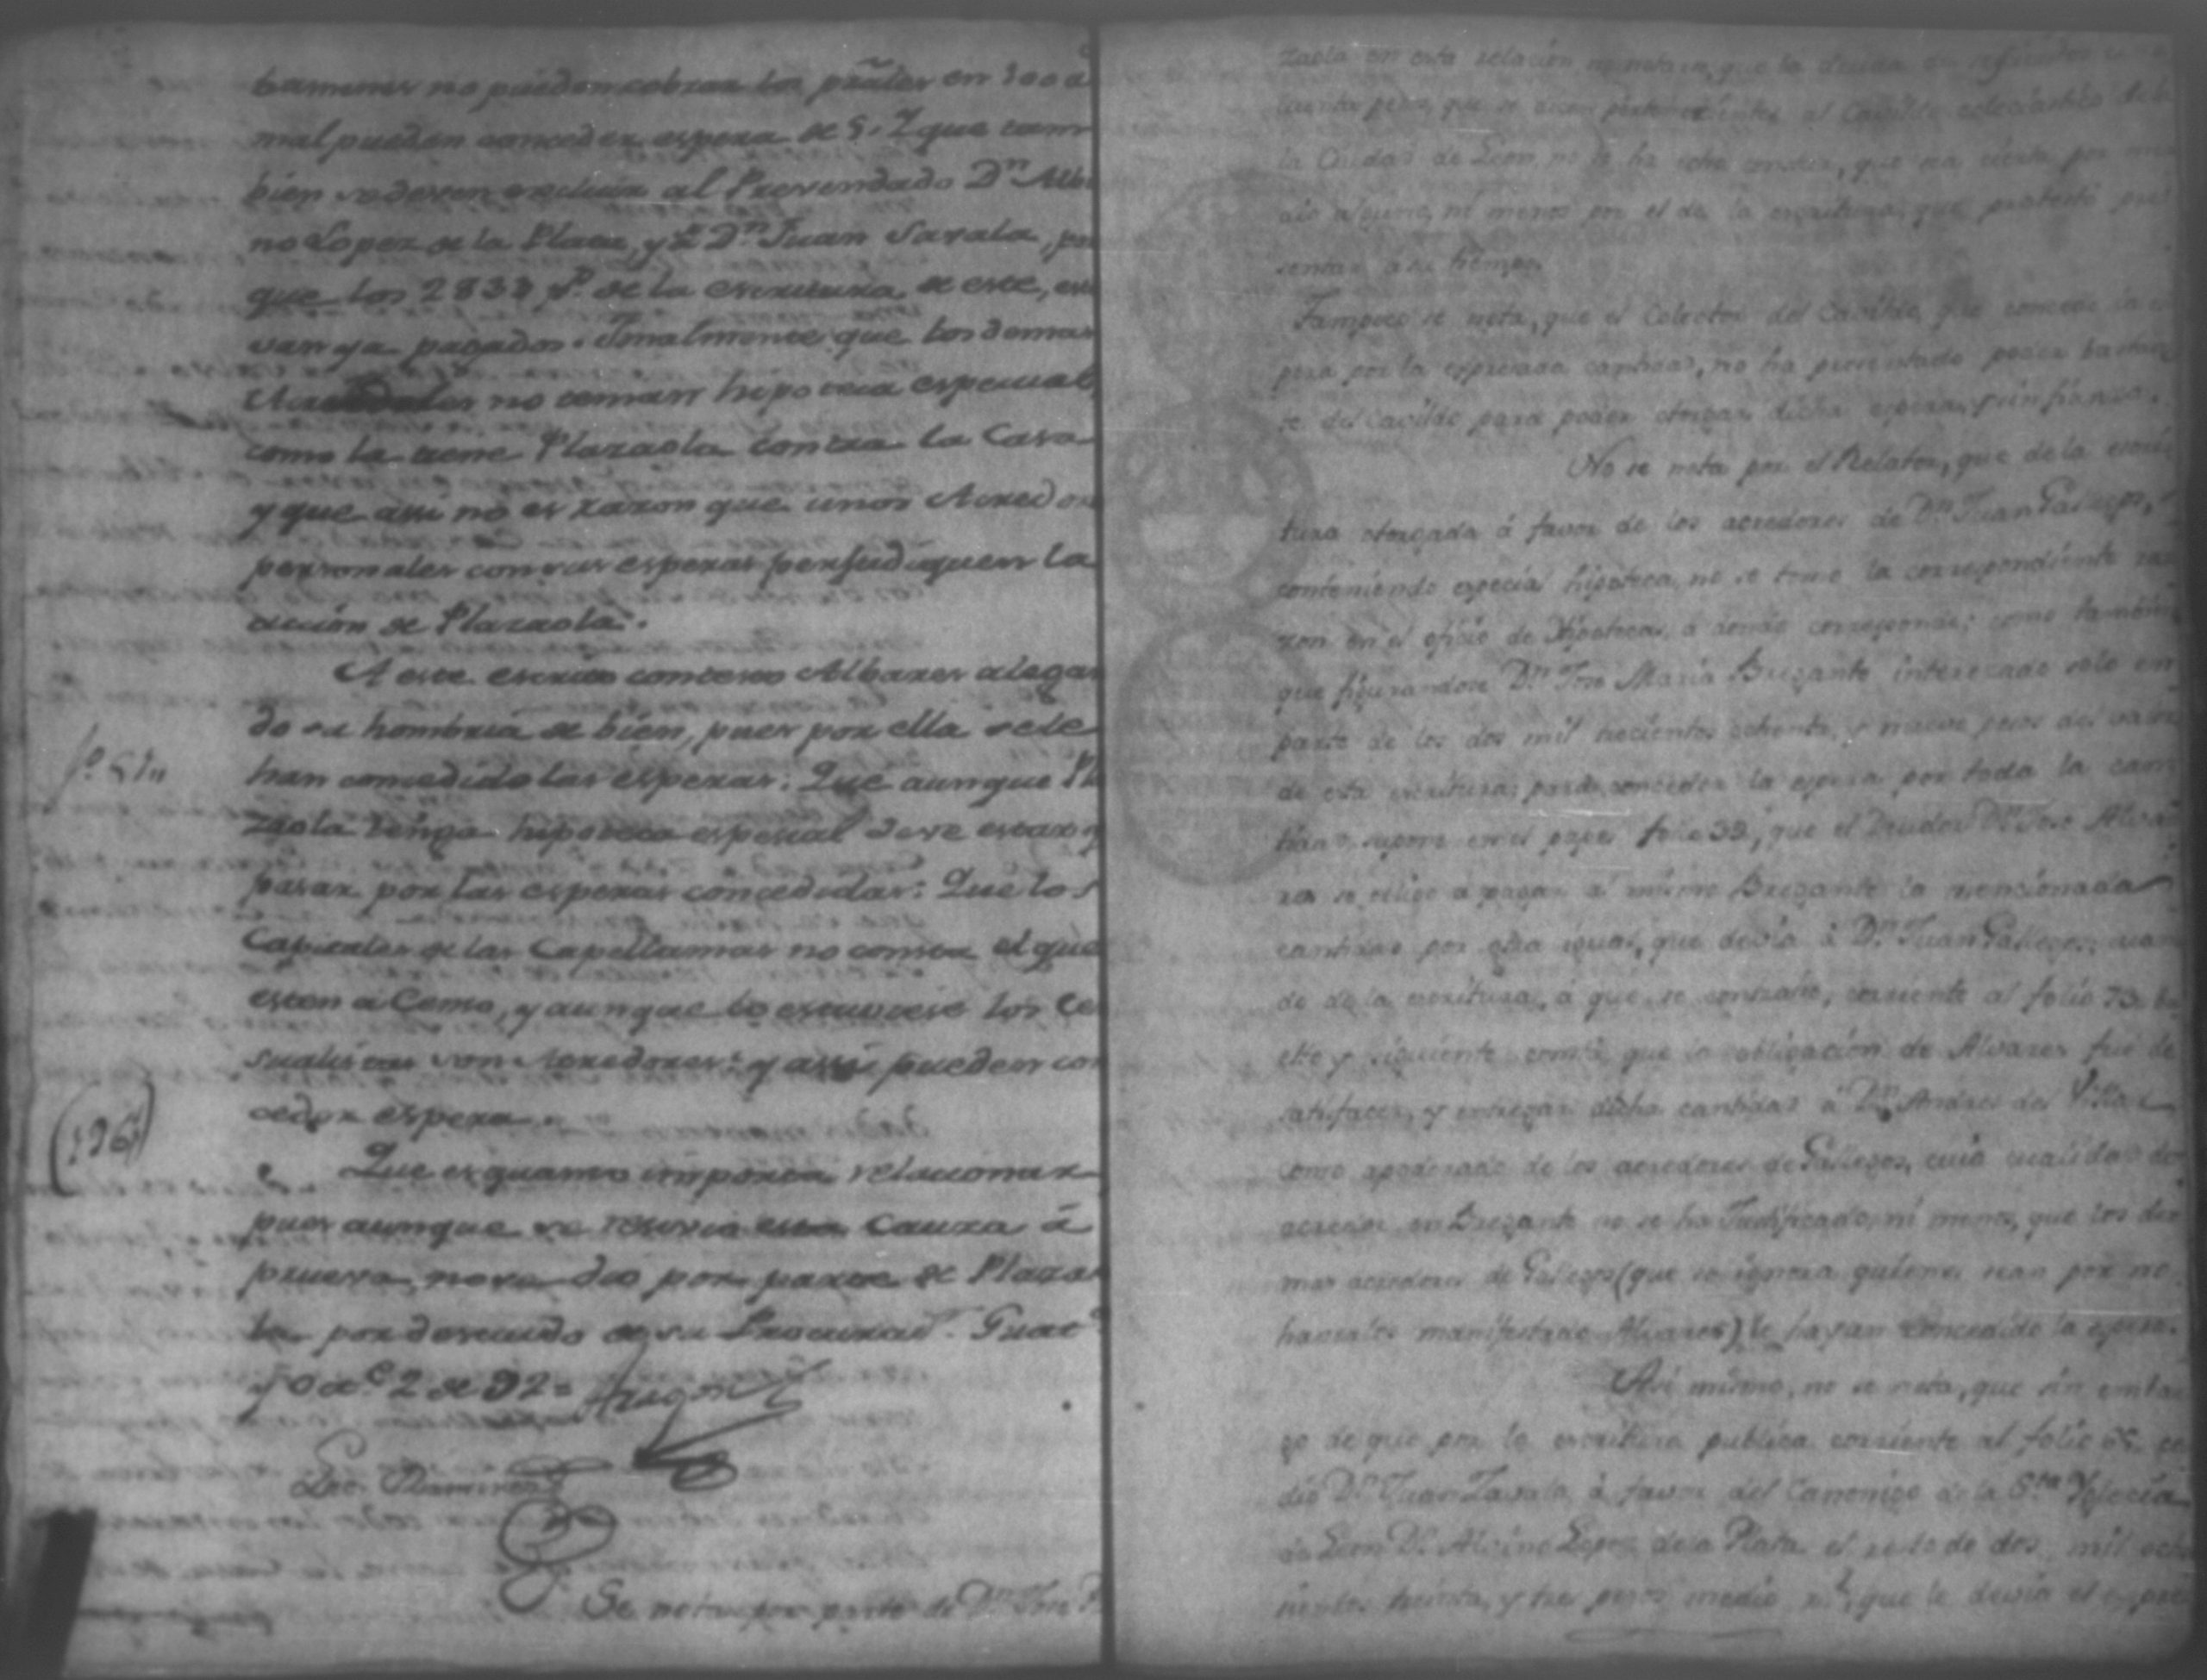 no pueden cobrar los pñales en 300 a
mal pueden conceder espera de 5. Y que tam
bien se deven excluir al Prevendado Dn Albi
no Lopez de la Plata, y á Dn Juan Savala, por
que los 2833 ps. de la escritura de este, est
van ya pagados. Finalmente que los demas
no tenian hipoteca especial,
como la tiene Plazaola contra la Casa
y que assi no es razon que unos Acredores
personales con sus esperas perjudiquen la
accion de Plazaola.
A este escrito contexto Albares alegan
do su hombria de bien, pues por ella se le
fo. 51
han concedido las esperas: Que aunque Pla
zaola tenga hipoteca especial deve estar y
pasar por las esperas concedidas: Que los
Capitales de las Capellanias no consta el que
esten á Censo, y aunque lo estuviese los Ce
sualistas son Acredores: y assi pueden con
ceder espera.
(136)
Que es quanto importa relacionar
pues aunque se recivio esta Cauza á
prueva, no se dio por parte de Plazao
la por descuido de su Procurador. Guate
y Oce 2 de 92=
Lic. Ramirez
Se nota por parte de Dn Jose P
zaola en esta relacion que la
cientos pesos, que se dicen pertenecientes al Cavildo eclesiastico de
la Ciudad de Leon, no se ha echo constar, que sea cierta por
alguno, ni menos por el de la escritura, que protestó pre
sentar á su tiempo.
Tampoco se nota, que el Colector del Cavildo, que concede la es
pera por la expresada cantidad, no ha presentado poder bastan
te del Cavildo para poder otorgar dicha espera, sin fianza.
No se nota por el Relator, que de la escri
tura otorgada á favor de los acredores de Dn Juan Gallegos,
conteniendo especial hipoteca, no se tomó la correspondiente ra
zon en el oficio de Hipotecas, á donde corresponde; como tambien
que figurandose Dn Jose Maria Brizante interezado solo en
parte de los dos mil trecientos ochenta, y nueve pesos del valor
de esta escritura; para conceder la espera por toda la can
tidad supone en el papel folio 39, que el Deudor Dn Jose Alva
rez se obligó á pagar al mismo Brizante la mencionada
cantidad por otra igual, que devia á Dn Juan Gallegos; cuan
do de la escritura, á que se contrahe, corriente al folio 73 bu
elto y siguiente consta que la obligacion de Alvarez fué de
satisfacer, y entregar dicha cantidad á Dn Andres del Villar
como apoderado de los acredores de Gallegos, cuia calidad de
acredor en Brizante no se ha Justificado, ni menos, que los de
mas acredores de Gallegos (que se ignora quienes sean por no
haverlos manifestado Alvarez) le hayan concedido la espera.
Asi mismo, no se nota, que sin embar
go de que por la escritura publica corriente al folio 65 ce
dió Dn Juan Zavala á favor del Canonigo de la Sta Yglecia
de Leon Dn Alvino Lopez de la Plata el resto de dos mil ocho
cientos treinta, y tres pesos medio rl, que le devia el